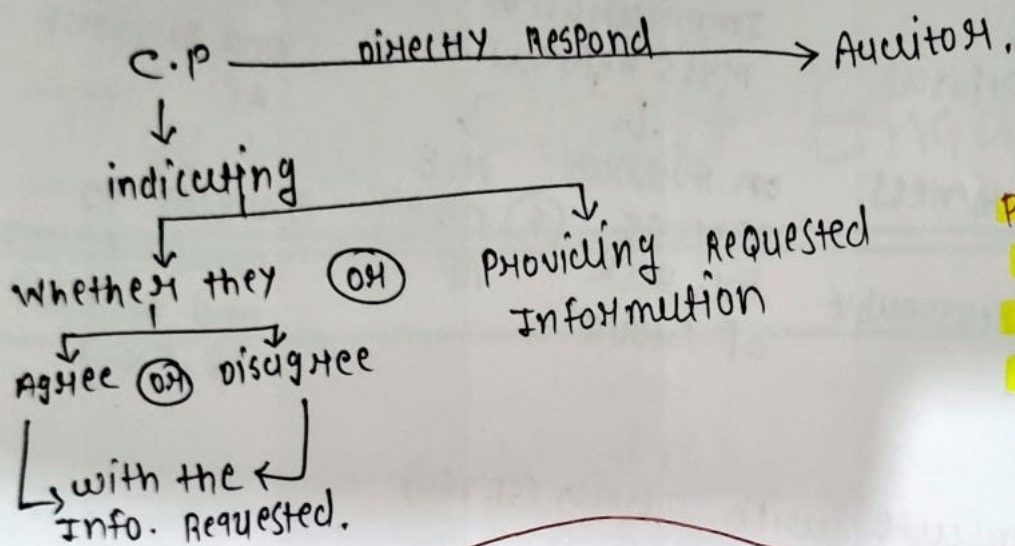 C.P Directly Respond Auditor.
indicating
Whether they OR Providing Requested
Information
Agree OR Disagree
with the
Info. Requested.